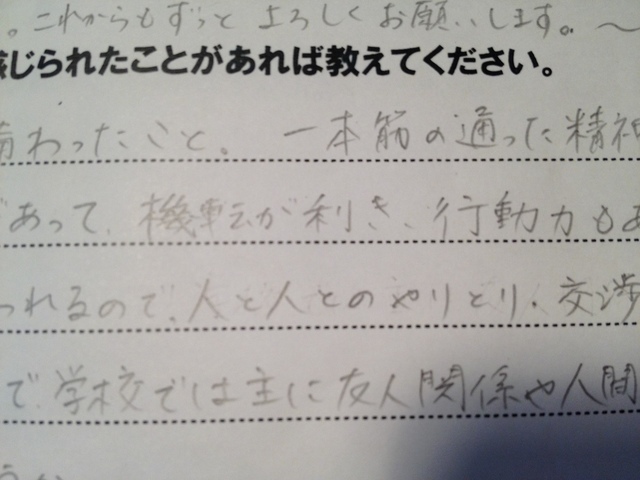 。これからもずっとよろしくお願いします。〜
感じられたことがあれば教えてください。
備わったこと。一本筋の通った精神
あって、機転が利き、行動力もあ
われるので、人と人とのやりとり・交渉
で、学校では主に友人関係や人間